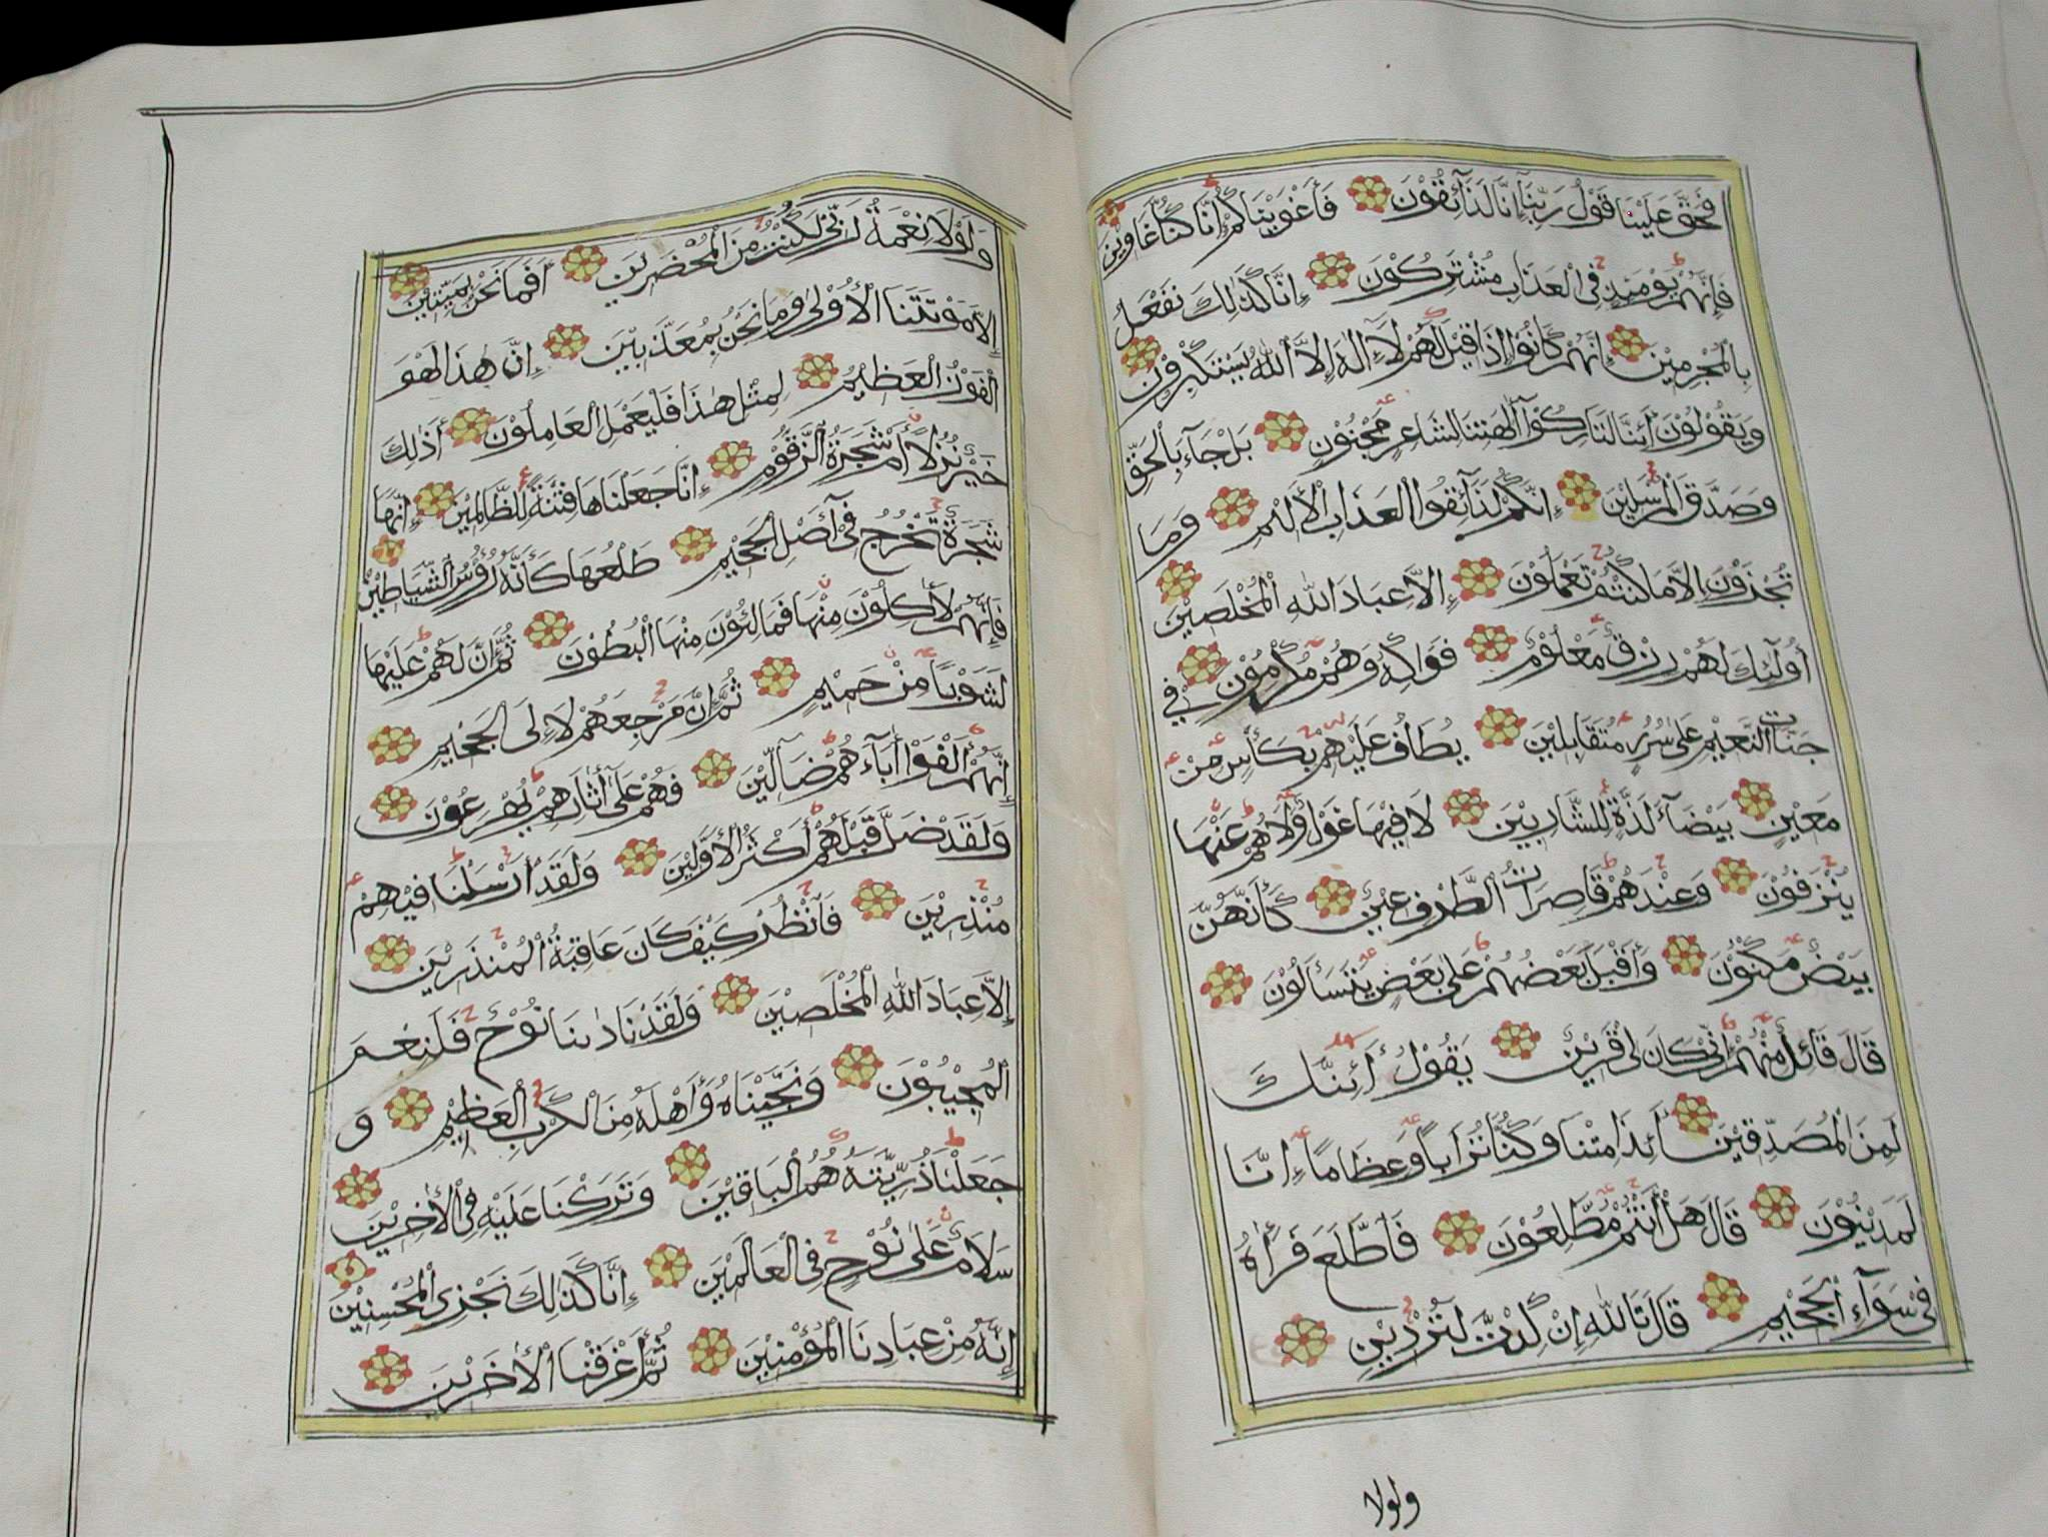 فَحَقَّ عَلَيْنَا قَوْلُ رَبِّنَآ إِنَّا لَذَآئِقُوْنَ فَأَغْوَيْنَاكُمْ إِنَّا كُنَّا غَاوِيْنَ
فَإِنَّهُمْ يَوْمَئِذٍ فِى الْعَذَابِ مُشْتَرِكُوْنَ إِنَّا كَذَٰلِكَ نَفْعَلُ
بِالْمُجْرِمِيْنَ إِنَّهُمْ كَانُوْا إِذَا قِيْلَ لَهُمْ لَآ إِلَٰهَ إِلَّا اللّٰهُ يَسْتَكْبِرُوْنَ
وَيَقُوْلُوْنَ أَئِنَّا لَتَارِكُوْآ آلِهَتِنَا لِشَاعِرٍ مَجْنُوْنٍ بَلْ جَآءَ بِالْحَقِّ
وَصَدَّقَ الْمُرْسَلِيْنَ إِنَّكُمْ لَذَآئِقُوا الْعَذَابِ الْأَلِيْمِ وَمَا
تُجْزَوْنَ إِلَّا مَا كُنْتُمْ تَعْمَلُوْنَ إِلَّا عِبَادَ اللّٰهِ الْمُخْلَصِيْنَ
أُولَٰئِكَ لَهُمْ رِزْقٌ مَعْلُوْمٌ فَوَاكِهُ وَهُمْ مُكْرَمُوْنَ فِي
جَنَّاتِ النَّعِيْمِ عَلَى سُرُرٍ مُتَقَابِلِيْنَ يُطَافُ عَلَيْهِمْ بِكَأْسٍ مِنْ
مَعِيْنٍ بَيْضَآءَ لَذَّةٍ لِلشَّارِبِيْنَ لَا فِيْهَا غَوْلٌ وَلَا هُمْ عَنْهَا
يُنْزَفُوْنَ وَعِنْدَهُمْ قَاصِرَاتُ الطَّرْفِ عِيْنٌ كَأَنَّهُنَّ
بَيْضٌ مَكْنُوْنٌ وَأَقْبَلَ بَعْضُهُمْ عَلَى بَعْضٍ يَتَسَآءَلُوْنَ
قَالَ قَآئِلٌ مِنْهُمْ إِنِّى كَانَ لِى قَرِيْنٌ يَقُوْلُ أَئِنَّكَ
لَمِنَ الْمُصَدِّقِيْنَ أَئِذَا مِتْنَا وَكُنَّا تُرَابًا وَعِظَامًا إِنَّا
لَمَدِيْنُوْنَ قَالَ هَلْ أَنْتُمْ مُطَّلِعُوْنَ فَاطَّلَعَ فَرَآهُ
فِىْ سَوَآءِ الْجَحِيْمِ قَالَ تَاللّٰهِ إِنْ كِدْتَّ لَتُرْدِيْنِ
ولولا
وَلَوْلَا نِعْمَةُ رَبِّى لَكُنْتُ مِنَ الْمُحْضَرِيْنَ أَفَمَا نَحْنُ بِمَيِّتِيْنَ
إِلَّا مَوْتَتَنَا الْأُوْلَى وَمَا نَحْنُ بِمُعَذَّبِيْنَ إِنَّ هَٰذَا لَهُوَ
الْفَوْزُ الْعَظِيْمُ لِمِثْلِ هَٰذَا فَلْيَعْمَلِ الْعَامِلُوْنَ أَذَٰلِكَ
خَيْرٌ نُزُلًا أَمْ شَجَرَةُ الزَّقُّوْمِ إِنَّا جَعَلْنَاهَا فِتْنَةً لِلظَّالِمِيْنَ إِنَّهَا
شَجَرَةٌ تَخْرُجُ فِىٓ أَصْلِ الْجَحِيْمِ طَلْعُهَا كَأَنَّهُ رُؤُسُ الشَّيَاطِيْنِ
فَإِنَّهُمْ لَآكِلُوْنَ مِنْهَا فَمَالِئُوْنَ مِنْهَا الْبُطُوْنَ ثُمَّ إِنَّ لَهُمْ عَلَيْهَا
لَشَوْبًا مِنْ حَمِيْمٍ ثُمَّ إِنَّ مَرْجِعَهُمْ لَإِلَى الْجَحِيْمِ
إِنَّهُمْ أَلْفَوْا آبَآءَهُمْ ضَآلِّيْنَ فَهُمْ عَلَىٓ آثَارِهِمْ يُهْرَعُوْنَ
وَلَقَدْ ضَلَّ قَبْلَهُمْ أَكْثَرُ الْأَوَّلِيْنَ وَلَقَدْ أَرْسَلْنَا فِيْهِمْ
مُنْذِرِيْنَ فَانْظُرْ كَيْفَ كَانَ عَاقِبَةُ الْمُنْذَرِيْنَ
إِلَّا عِبَادَ اللّٰهِ الْمُخْلَصِيْنَ وَلَقَدْ نَادَٰىنَا نُوْحٌ فَلَنِعْمَ
الْمُجِيْبُوْنَ وَنَجَّيْنَاهُ وَأَهْلَهُ مِنَ الْكَرْبِ الْعَظِيْمِ وَ
جَعَلْنَا ذُرِّيَّتَهُ هُمُ الْبَاقِيْنَ وَتَرَكْنَا عَلَيْهِ فِى الْآخِرِيْنَ
سَلَامٌ عَلَى نُوْحٍ فِى الْعَالَمِيْنَ إِنَّا كَذَٰلِكَ نَجْزِى الْمُحْسِنِيْنَ
إِنَّهُ مِنْ عِبَادِنَا الْمُؤْمِنِيْنَ ثُمَّ أَغْرَقْنَا الْآخَرِيْنَ